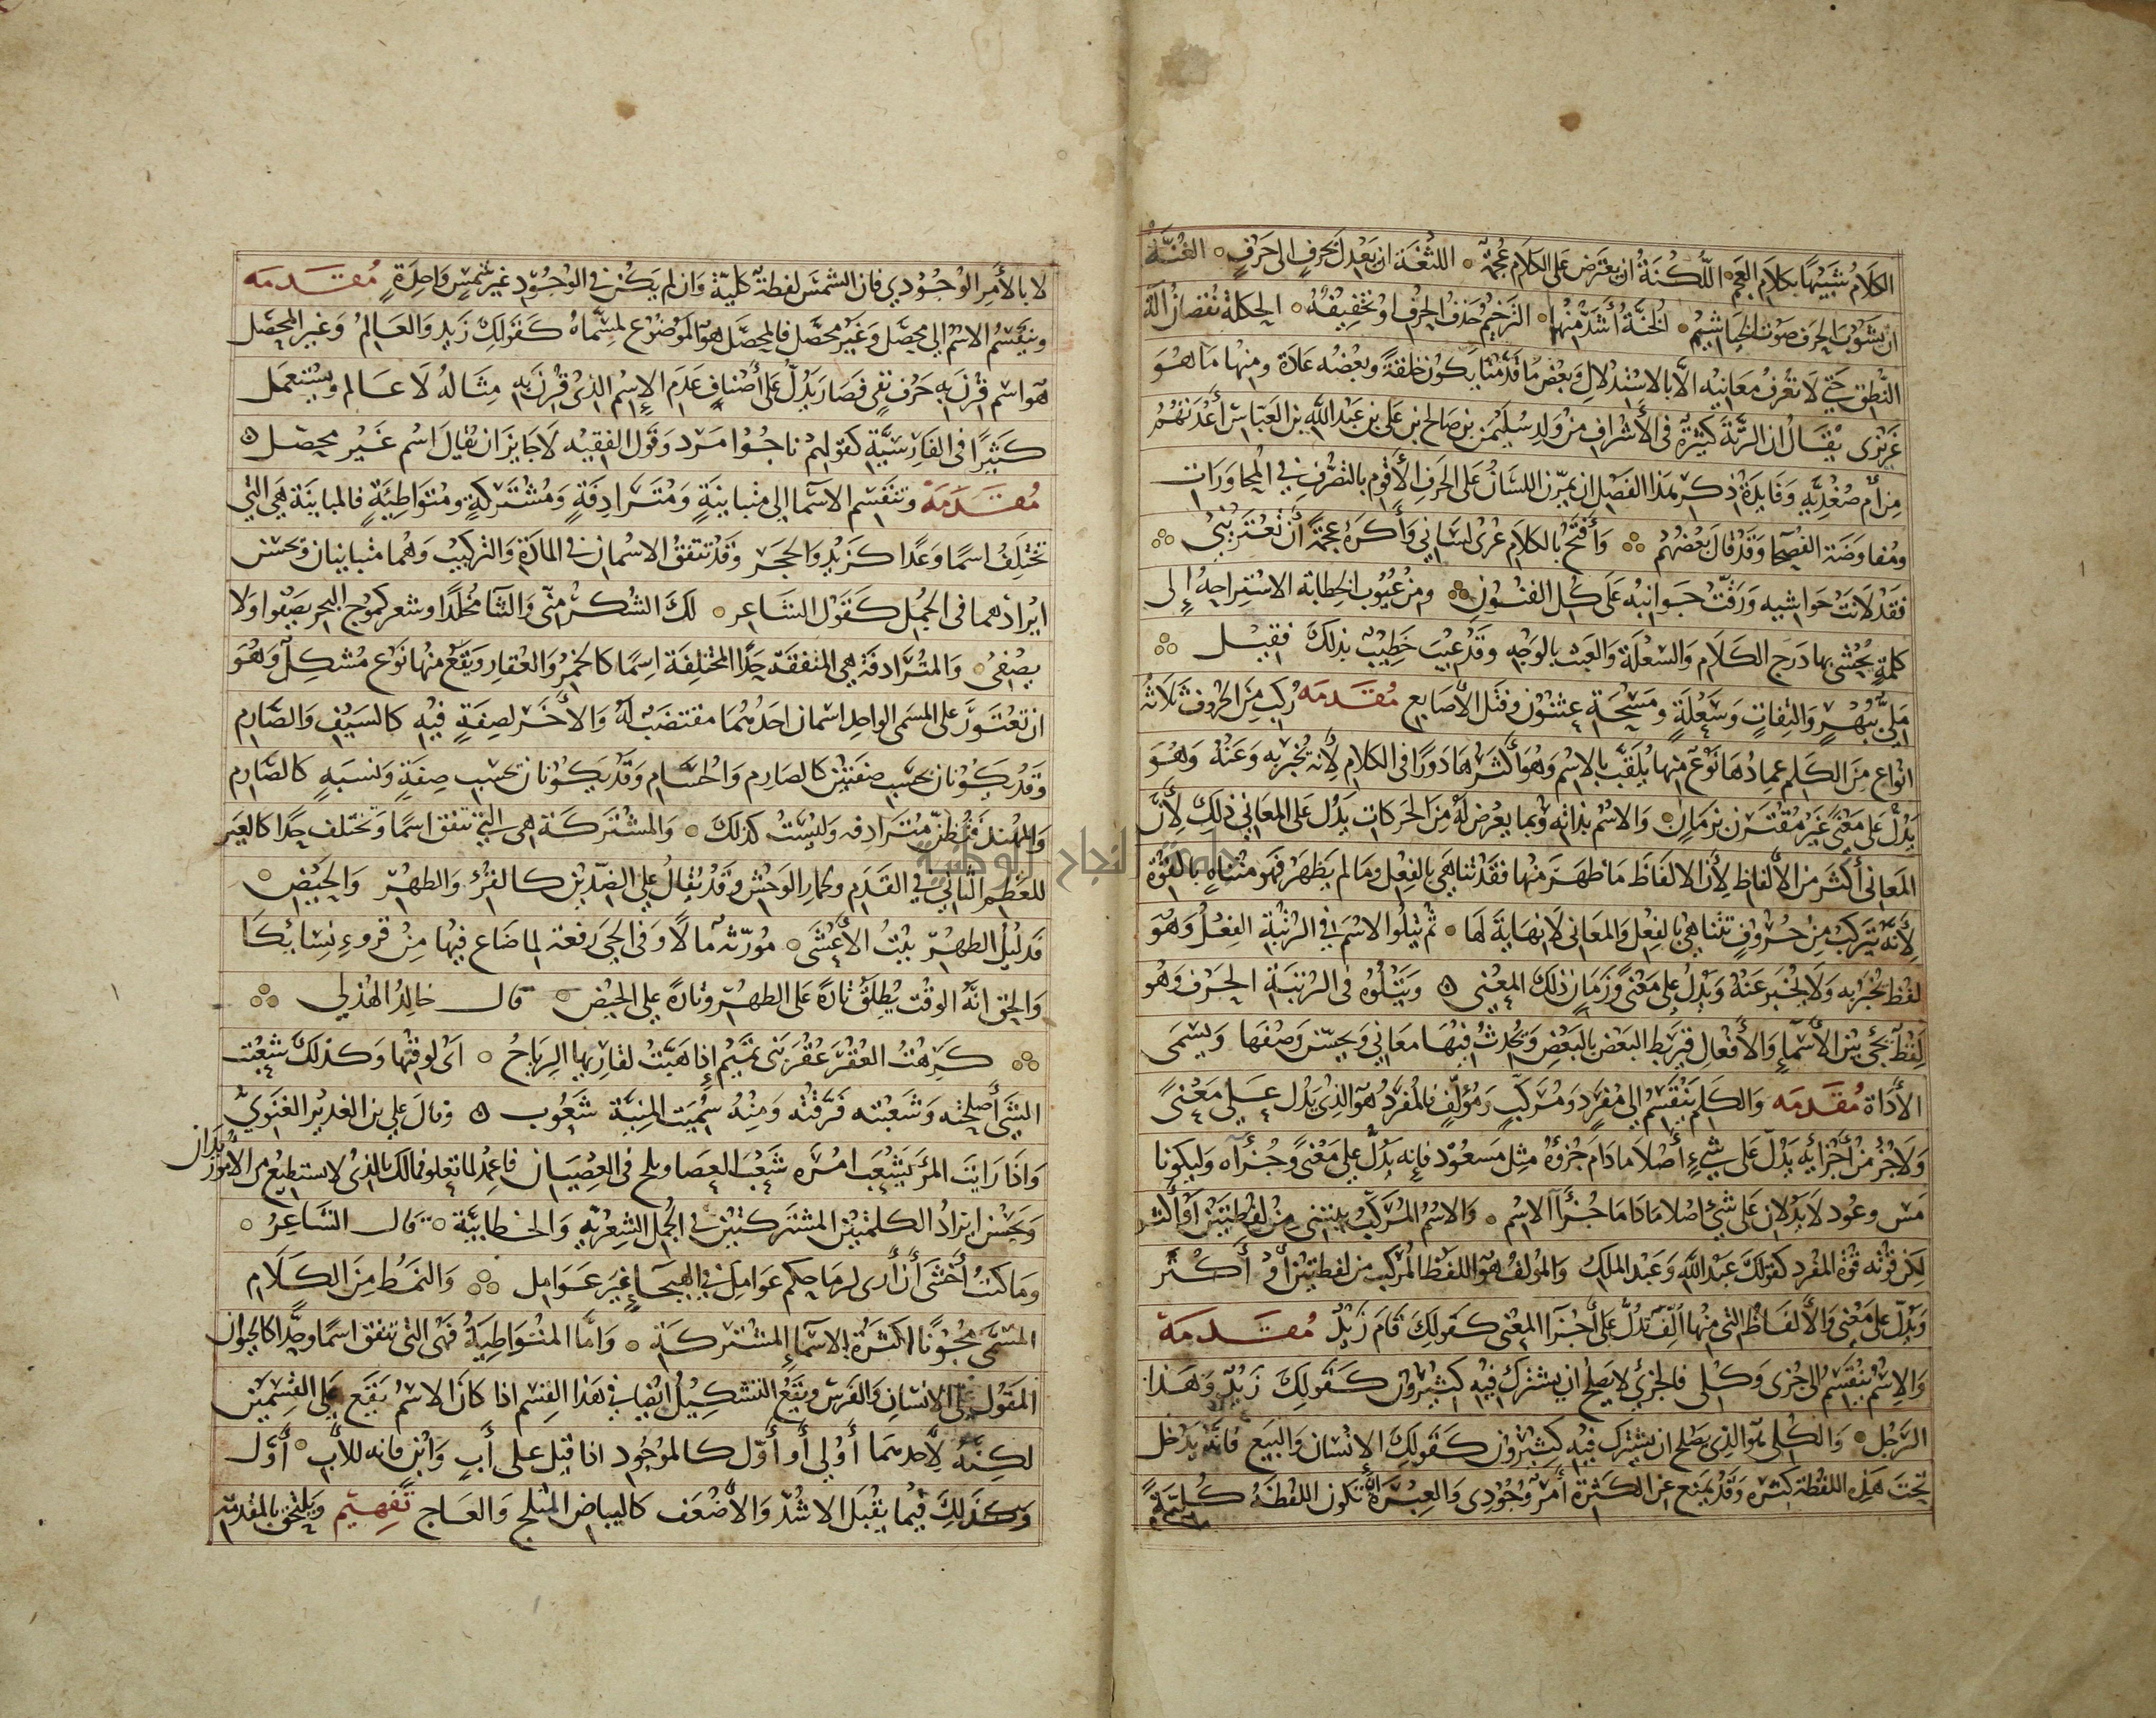 الكلام شبيها بكلام العجم اللكنة ان يعترض على الكلام عجمة اللثغة ان يعدل بحرف الى حرف الغنة
ان يشوب الحرف صوت الخياشيم الخنة أشد منها الترخيم حذف الحرف او تخفيفه الحكلة نقصان آلة
النطق حتى لا تعرف معانيه الا بالاستدلال وبعض ما قدمنا يكون خلقة وبعضه عادة ومنها ما هو
غريزى يقال ان الرتة كثيرة فى الأشراف من ولد سليمن بن صالح بن على بن عبد الله بن العباس أعدتهم
من أم صغدية وفايدة ذكر هذا الفصل ان يمرن اللسان على الحرف الأقوم بالتصرف في المحاورات
ومفاوضة الفصحا وقد قال بعضهم وأفتح بالكلام عرى لساني وأكره عجمة أن تعتريني
فقد لانت حواشيه ورقت جوانبه على كل الفنون ومن عيوب الخطابة الاستراحة إلى
كلمة يحشى بها درج الكلام والسعلة والعبث بالوجه وقد عيب خطيب بذلك فقيل
ملئ ببهر والتفات وسعلة ومسحة عثنون وفتل الأصابع مقدمه ركب من الحروف ثلاثة
انواع من الكلم عمادها نوع منها يلقب بالاسم وهو أكثرها دورا فى الكلام لأنه تخبر به وعنه وهو
يدل على معنى غير مقترن بزمان والاسم بذاته وبما يعرض له من الحركات يدل على المعاني ذلك لأن
المعانى أكثر من الألفاظ لأن الالفاظ ما ظهر منها فقد تناهى بالفعل وما لم يظهر فهو متناه بالقوة
لأنه تركب من حروف تتناهى بالفعل والمعانى لا نهاية لها ثم يتلوا الاسم في الرتبة الفعل وهو
لفظ يخبر به ولا يخبر عنه ويدل على معنى وزمان ذلك المعنى ويتلوه فى الرتبة الحرف وهو
لفظ يجئ بين الأسماء والأفعال فيربط البعض بالبعض ويحدث فيها معاني ويحسن وصفها ويسمى
الأداة مقدمه والكلم ينقسم إلى مفرد ومركب ومؤلف فالمفرد هو الذى يدل على معنى
ولا جزء من أجزائه يدل على شيء أصلا مادام جزؤه مثل مسعود فإنه يدل على معنى وجزآه وليكونا
مس وعود لا يدلان على شئ اصلا ماداما جزأ الاسم والاسم المركب يبتنى من لفظتين أو أكثر
لكن قوته قوة المفرد كقولك عبد الله وعبد الملك والمولف هو اللفظ المركب من لفظتين أو أكثر
ويدل على معنى والألفاظ التى منها ألف تدل على أجزآ المعنى كقولك قام زيد مقدمه
والاسم ينقسم إلى جزى وكلى فالجزئي لا يصلح ان يشترك فيه كثيرون كقولك زيد وهذا
الرجل والكلى هو الذى يصلح ان يشترك فيه كثيرون كقولك الانسان والبيع فانه يدخل
تحت هذه اللفظة كثره وقد يمنع عن الكثرة أمر وجودى والعبرة ان تكون اللفظة كلية
لا بالأمر الوجودي فان الشمس لفظة كلية وان لم يكن في الوجود غير شمس واحدة مقدمه
وينقسم الاسم الى محصل وغير محصل فالمحصل هو الموضوع لمسماه كقولك زيد والعالم وغير المحصل
هو اسم قرن به حرف نفى فصار يدل على أصناف عدم الإسم الذى قرن به مثاله لا عالم ويستعمل
كثيرا فى الفارسية كقولهم نا جوا مرد وقول الفقيه لا جايز ان يقال اسم غير محصل
مقدمة وتنقسم الآسما الى متباينة ومترادفة ومشتركة ومتواطية فالمباينة هى التي
تختلف اسما وعدا كزيد والحجر وقد تتفق الاسمان في المادة والتركيب وهما متباينان ويحسن
ايرادهما فى الجمل كقول الشاعر لك الشكر منى والثنا مخلدا وشعر كموج البحر يصفوا ولا
يصفى والمترادفة هى المتفقة حدا المختلفة اسما كالخمر والعقار ويقع منها نوع مشكل وهو
ان تعتور على المسمى الواحد اسمان احدهما مقتضب له والأخر لصفة فيه كالسيف والصارم
وقد يكونان بحسب صفتين كالصارم والحسام وقد يكونان بحسب صفة ونسبة كالصارم
والمهند فتظن مترادفة وليست كذلك والمشتركة هى التي تتفق اسما وتختلف حدا كالعير
للعظم الناتي في القدم وحمار الوحش وقد يقال على الضدين كالقرء والطهر والحيض
فدليل الطهر بيت الأعشى مورثة مالا وفى الحى رفعة لما ضاع فيها من قروء نسائكا
والحق انه الوقت يطلق تارة على الطهر وتارة على الحيض قال خالد الهذلي
كرهت العقر عقر بنى تميم إذا هبت لقاريها الرياح اى لوقتها وكذلك شعبت
الشئ أصلحته وشعبته فرقته ومنه سميت المنية شعوب وقال على بن الغدير الغنوي
واذا رايت المرء يشعب امره شعب العصا ويلح فى العصيان فاعمد لما تعلو فمالك بالذى لا تستطيع من الامور يدان
ويحسن ايراد الكلمتين المشتركتين في الجمل الشعرية والخطابية قال الشاعر
وما كنت أخشى أن أرى لرماحكم عوامل في الهيجاء غير عوامل والنمط من الكلام
المسمى مجونا لكثرة الاسماء المشتركة واما المتواطية فهى التى تتفق اسما وحدا كالحيوان
المقول على الانسان والفرس ويقع التشكيل ايضا في هذا القسم اذا كان الاسم يقع على القسمين
لكنه لأحدهما أولى أو أول كالموجود اذا قيل على أب وابن فانه للأب أول
وكذلك فيما يقبل الاشد والأضعف كالبياض المثلج والعاج تفهيم ويلتحق بالمقدمة